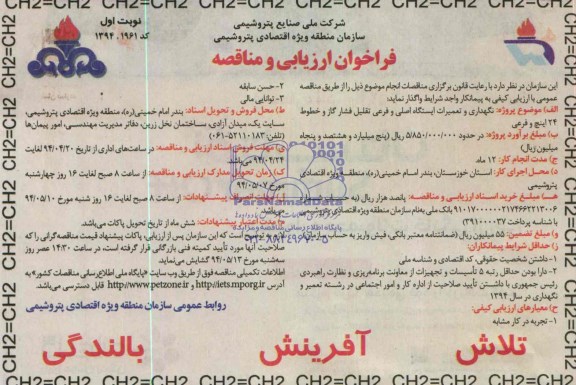 CH2=CH2=CH2=CH2=CH2=CH2=CH2=CH2
شرکت ملی صنایع پتروشیمی
سازمان منطقه ویژه اقتصادی پتروشیمی
نوبت اول
کد ۱۹۶۱ . ۱۳۹۴
فراخوان ارزیابی و مناقصه
این سازمان در نظر دارد با رعایت قانون برگزاری مناقصات انجام موضوع ذیل را از طریق مناقصه
عمومی با ارزیابی کیفی به پیمانکار واجد شرایط واگذار نماید:
الف) موضوع پروژه: نگهداری و تعمیرات ایستگاه اصلی و فرعی تقلیل فشار گاز و خطوط
۲۴ اینچ و فرعی
ب) مبلغ برآورد پروژه: حدود ۵/۸۵۰/۰۰۰/۰۰۰ ریال (پنج میلیارد و هشتصد و پنجاه
میلیون ریال)
ج) مدت انجام کار: ۱۲ ماه
د) محل اجرای کار: استان خوزستان، بندر امام خمینی(ره)، منطقه ویژه اقتصادی
پتروشیمی
هـ) مبلغ خرید اسناد ارزیابی و مناقصه: پانصد هزار ریال
بانک ملی بنام سازمان منطقه ویژه اقتصادی پتروشیمی
و) مبلغ تضمین: ۵۵ میلیون ریال (ضمانتنامه معتبر بانکی، فیش واریز به حساب سازمان)
ز) حداقل شرایط پیمانکاران:
۱- داشتن شخصیت حقوقی، کد اقتصادی و شناسه ملی
۲- دارا بودن حداقل رتبه ۵ تأسیسات و تجهیزات از معاونت برنامه‌ریزی و نظارت راهبردی
رئیس جمهوری یا داشتن تأیید صلاحیت از اداره کار و امور اجتماعی در رشته تعمیر و
نگهداری در سال ۱۳۹۴
ح) معیارهای ارزیابی کیفی:
۱- تجربه در کار مشابه
۲- حسن سابقه
۳- توانایی مالی
ط) محل فروش و تحویل اسناد: بندر امام خمینی(ره)، منطقه ویژه اقتصادی پتروشیمی،
سایت یک، میدان آزادی، ساختمان نخل زرین، دفاتر مدیریت مهندسی، امور پیمان‌ها
(تلفن: ۵۲۱۱۰۱۸۳-۰۶۱)
ی) مهلت فروش اسناد ارزیابی و مناقصه: در ساعت‌های اداری از تاریخ ۹۴/۰۴/۲۰ لغایت
۹۴/۰۴/۲۴ می‌باشد.
ک) زمان تحویل مدارک ارزیابی و مناقصه: از ساعت ۸ صبح لغایت ۱۶ روز چهارشنبه
مورخ ۹۴/۰۵/۰۷
از ساعت ۸ صبح لغایت ۱۶ روز شنبه مورخ ۹۴/۰۵/۱۰
مدت اعتبار پیشنهادات: شش ماه از تاریخ تحویل پاکات می‌باشد.
لازم به توضیح است که این سازمان پس از ارزیابی، پاکات پیشنهاد قیمت مناقصه‌گرانی را که
صلاحیت آنها مورد تأیید کمیته فنی بازرگانی قرار گرفته است، در ساعت ۱۴:۳۰ عصر روز
سه‌شنبه مورخ ۹۴/۰۵/۱۳ گشایش می‌نماید.
اطلاعات تکمیلی مناقصه فوق از طریق وب سایت «پایگاه ملی اطلاع‌رسانی مناقصات کشور» به
آدرس http://iets.mporg.ir و http://www.petzone.ir قابل دسترسی می‌باشد.
روابط عمومی سازمان منطقه ویژه اقتصادی پتروشیمی
ParsNamadData
تلاش آفرینش بالندگی
CH2=CH2=CH2=CH2=CH2=CH2=CH2=CH2